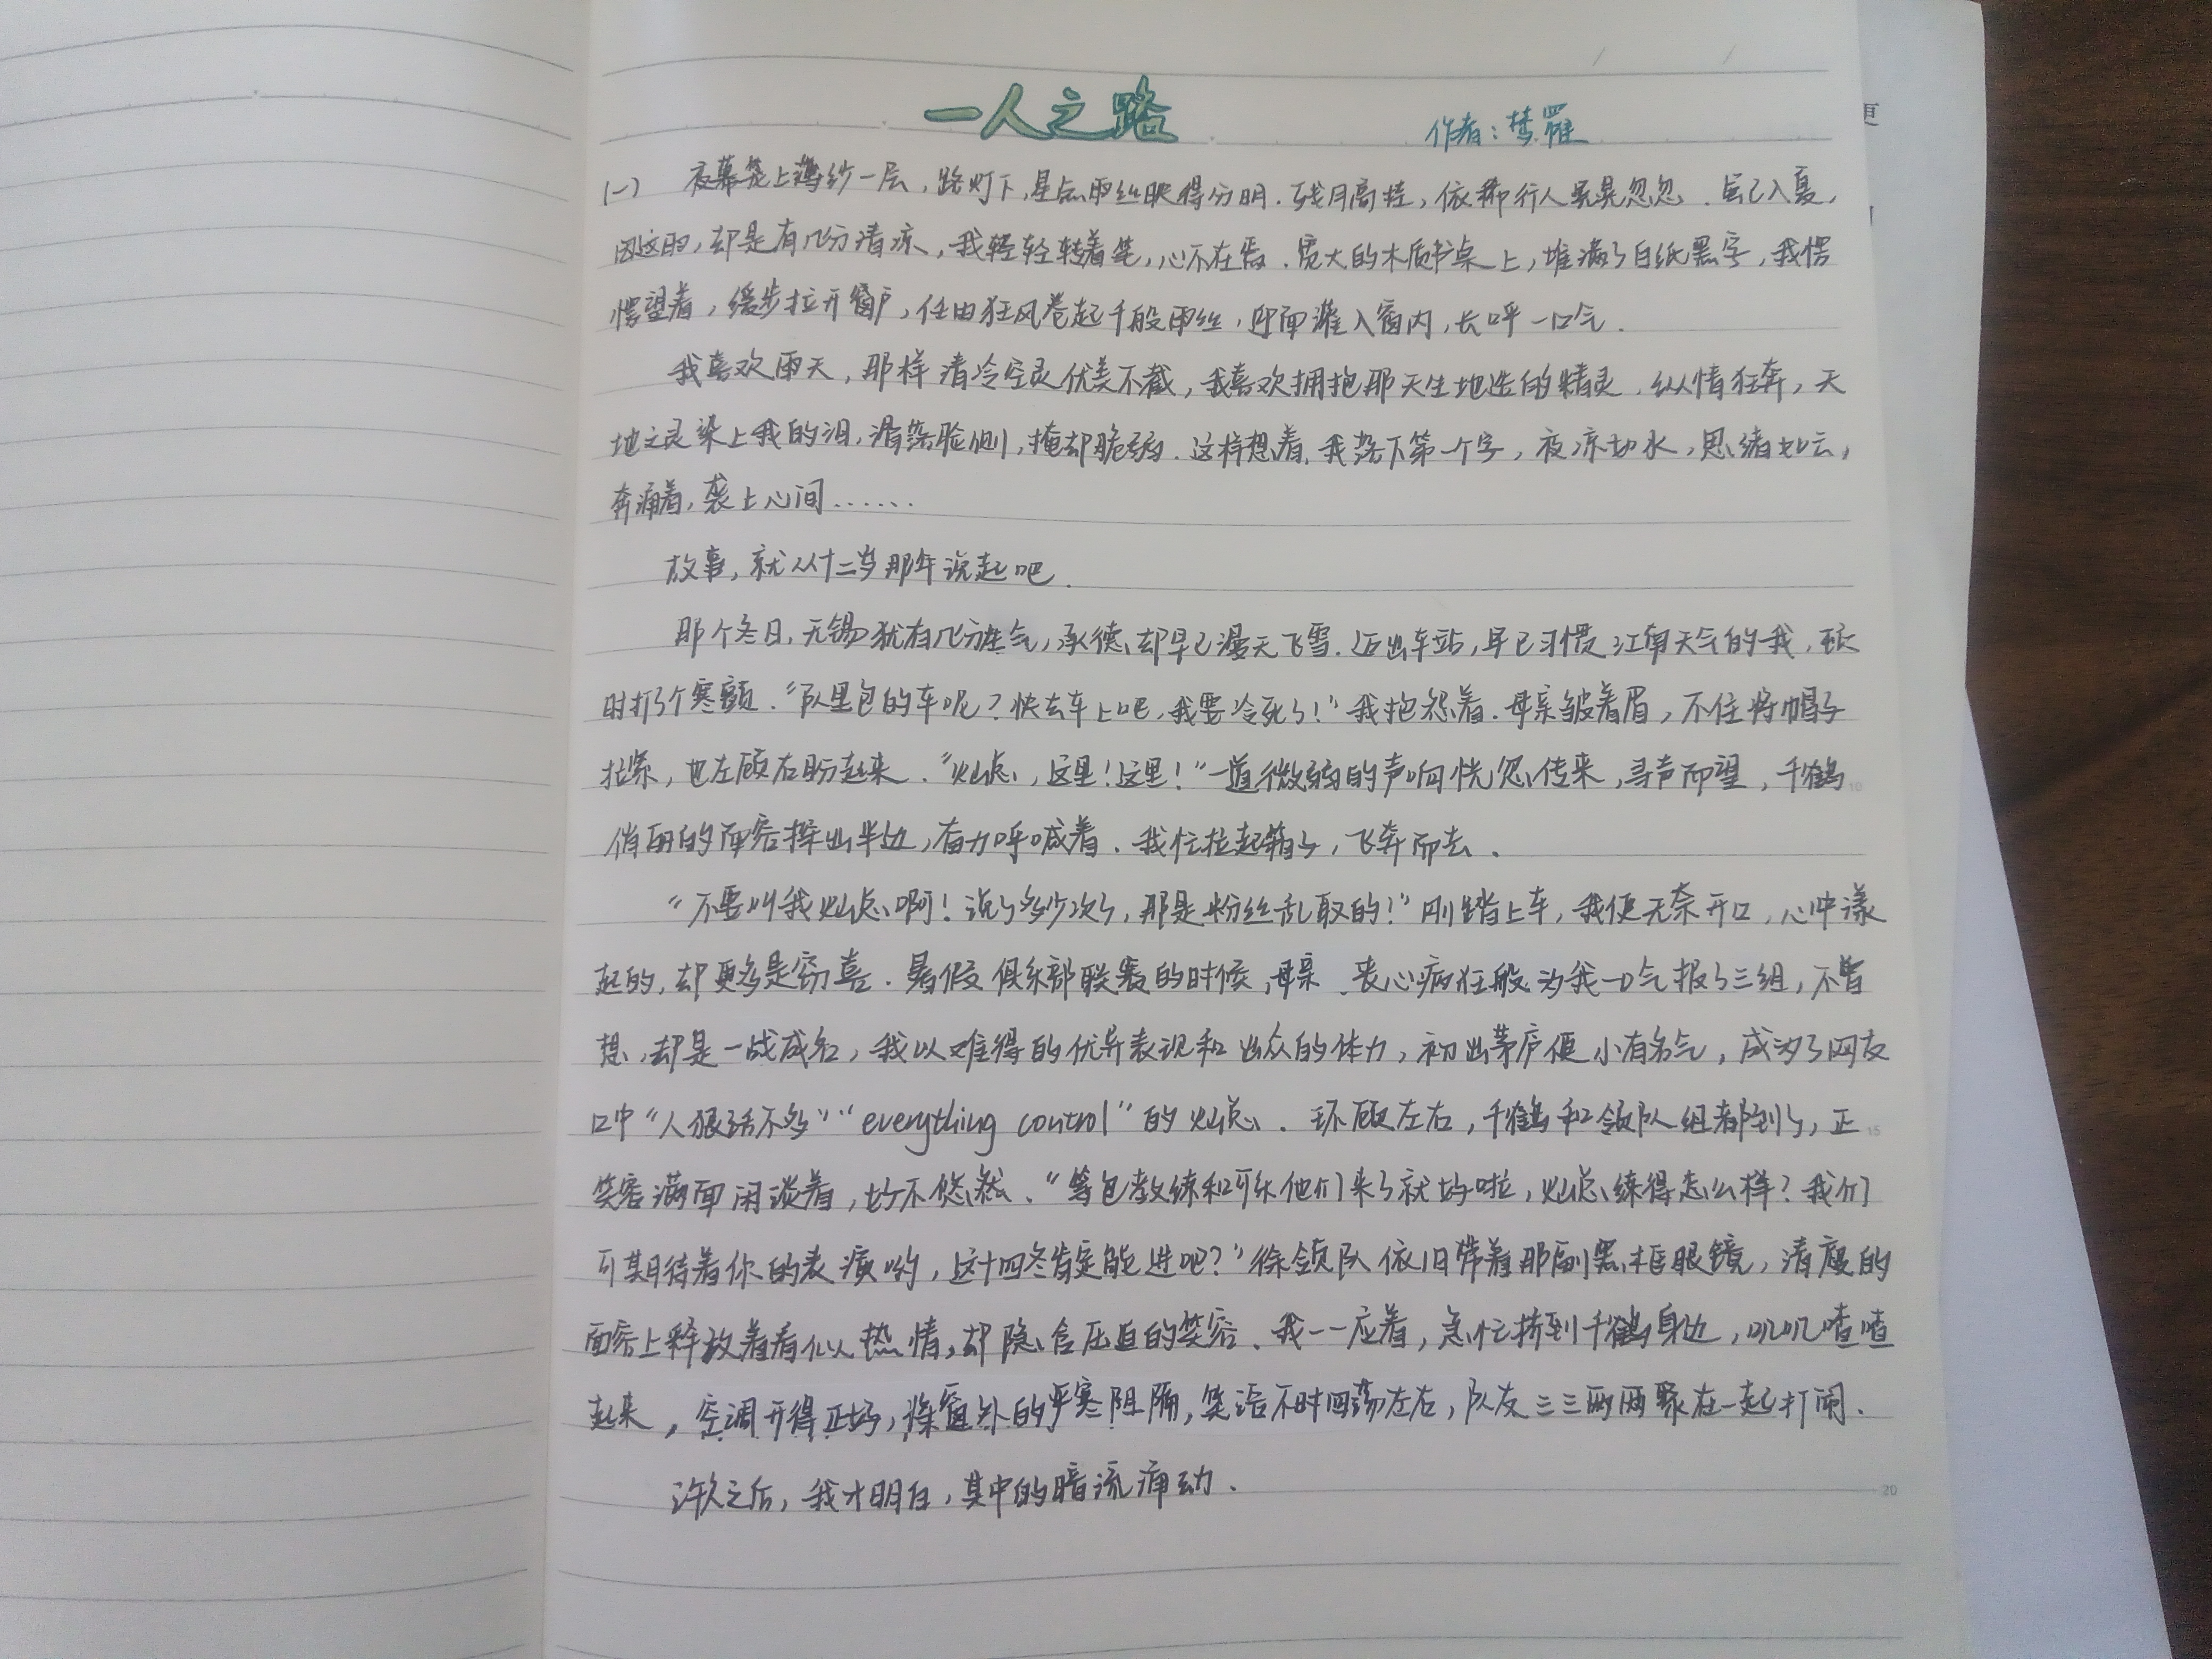 一人之路
作者：梦罹
(一) 夜幕笼上薄纱一层，路灯下，星点雨丝映得分明．残月高挂，依稀行人晃晃忽忽．虽已入夏，
因这雨，却是有几分清凉，我轻轻转着笔，心不在焉．宽大的木质书桌上，堆满了白纸黑字，我愣
愣望着，缓步拉开窗户，任由狂风卷起千般雨丝，迎面灌入窗内，长呼一口气．
我喜欢雨天，那样清冷空灵优美不截，我喜欢拥抱那天生地造的精灵．纵情狂奔，天
地之灵染上我的泪，滑落脸侧，掩却脆弱．这样想着，我落下第一个字，夜凉如水，思绪如云，
奔涌着，袭上心间……
故事，就从十二岁那年说起吧．
那个冬日，无锡犹有几分生气，承德却早已漫天飞雪．迈出车站，早已习惯江南天气的我，顿
时打了个寒颤．“队里包的车呢？快去车上吧，我要冷死了！”我抱怨着．母亲皱着眉，不住将帽子
拉紧，也左顾右盼起来．“灿总，这里！这里！”一道微弱的声响恍忽传来，寻声而望，千鹤
俏丽的面容探出半边，奋力呼喊着．我忙拉起箱子，飞奔而去．
“不要叫我灿总啊！说了多少次了，那是粉丝乱取的！”刚踏上车，我便无奈开口，心中漾
起的，却更多是窃喜．暑假俱乐部联赛的时候，母亲丧心病狂般为我一口气报了三组，不曾
想，却是一战成名，我以难得的优异表现和出众的体力，初出茅庐便小有名气，成为了网友
口中“人狠话不多”“everything control”的灿总．环顾左右，千鹤和领队组都到了，正
笑容满面闲谈着，好不悠然．“等包教练和可乐他们来了就好啦，灿总练得怎么样？我们
可期待着你的表演哟，这十四冬肯定能进吧？”徐领队依旧带着那副黑框眼镜，清瘦的
面容上释放着看似热情，却隐含压迫的笑容．我一一应着，急忙挤到千鹤身边，叽叽喳喳
起来，空调开得正好，将窗外的严寒阻隔，笑语不时回荡左右，队友三三两两聚在一起打闹．
许久之后，我才明白，其中的暗流涌动．
10
15
20
更